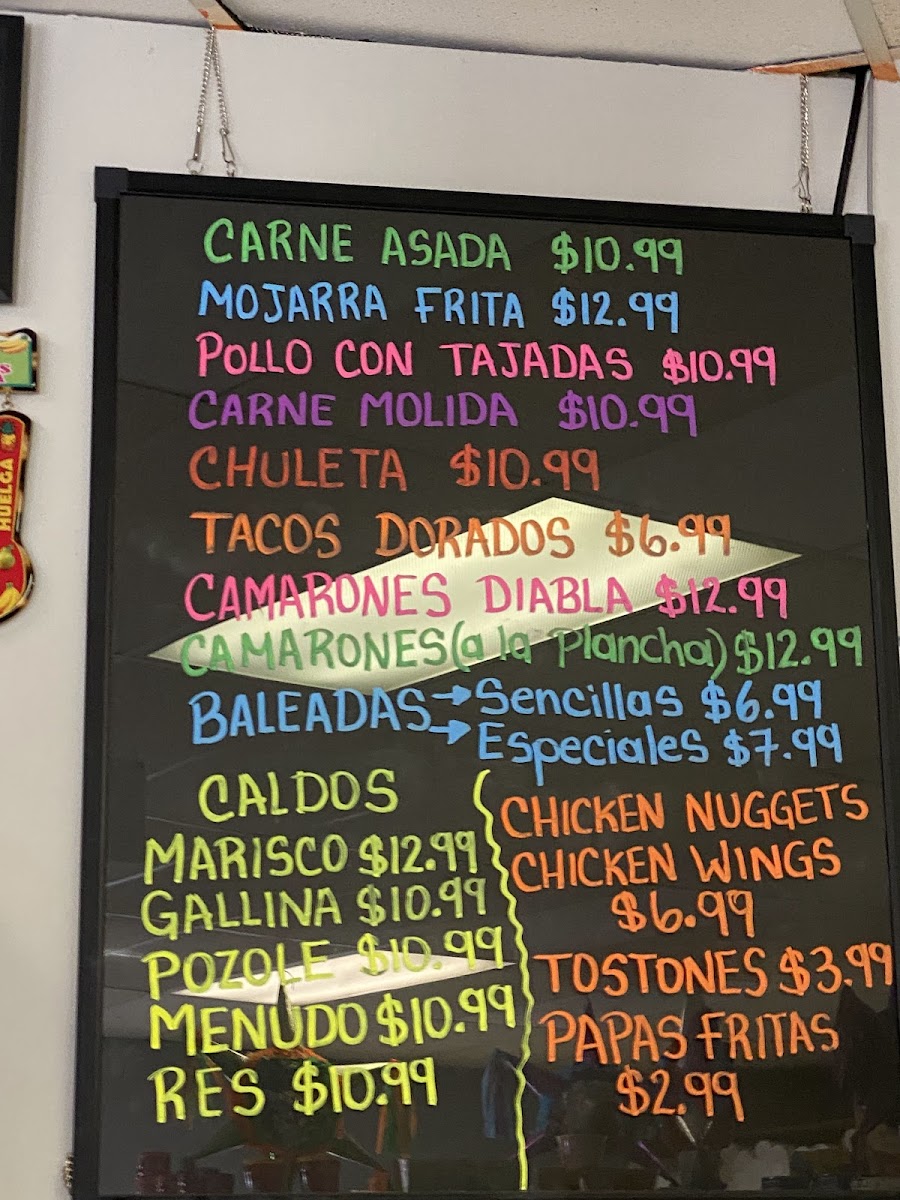 CARNE ASADA $10.99
MOJARRA FRITA $12.99
POLLO CON TAJADAS $10.99
CARNE MOLIDA $10.99
CHULETA $10.99
TACOS DORADOS $6.99
CAMARONES DIABLA $12.99
CAMARONES (a la Plancha) $12.99
BALEADAS → Sencillas $6.99
→ Especiales $7.99
CALDOS
MARISCO $12.99
GALLINA $10.99
POZOLE $10.99
MENUDO $10.99
RES $10.99
CHICKEN NUGGETS
CHICKEN WINGS
$6.99
TOSTONES $3.99
PAPAS FRITAS
$2.99
HUELGA